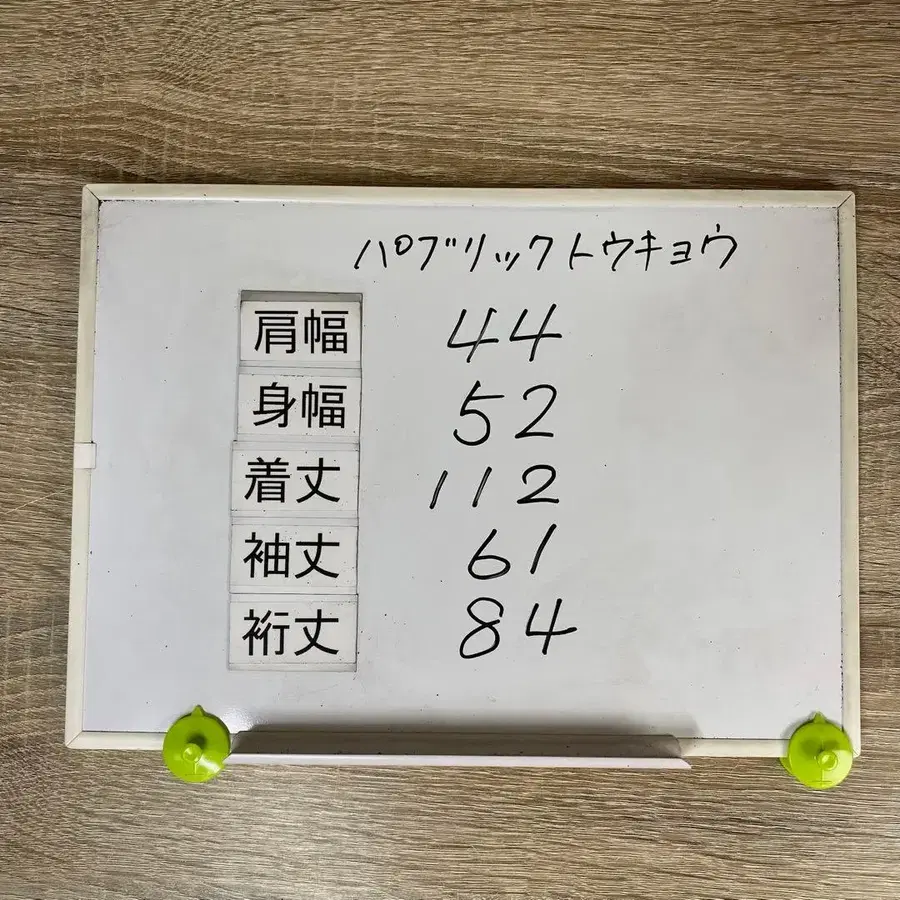 パブリックトウキョウ
肩幅 44
身幅 52
着丈 112
袖丈 61
裄丈 84